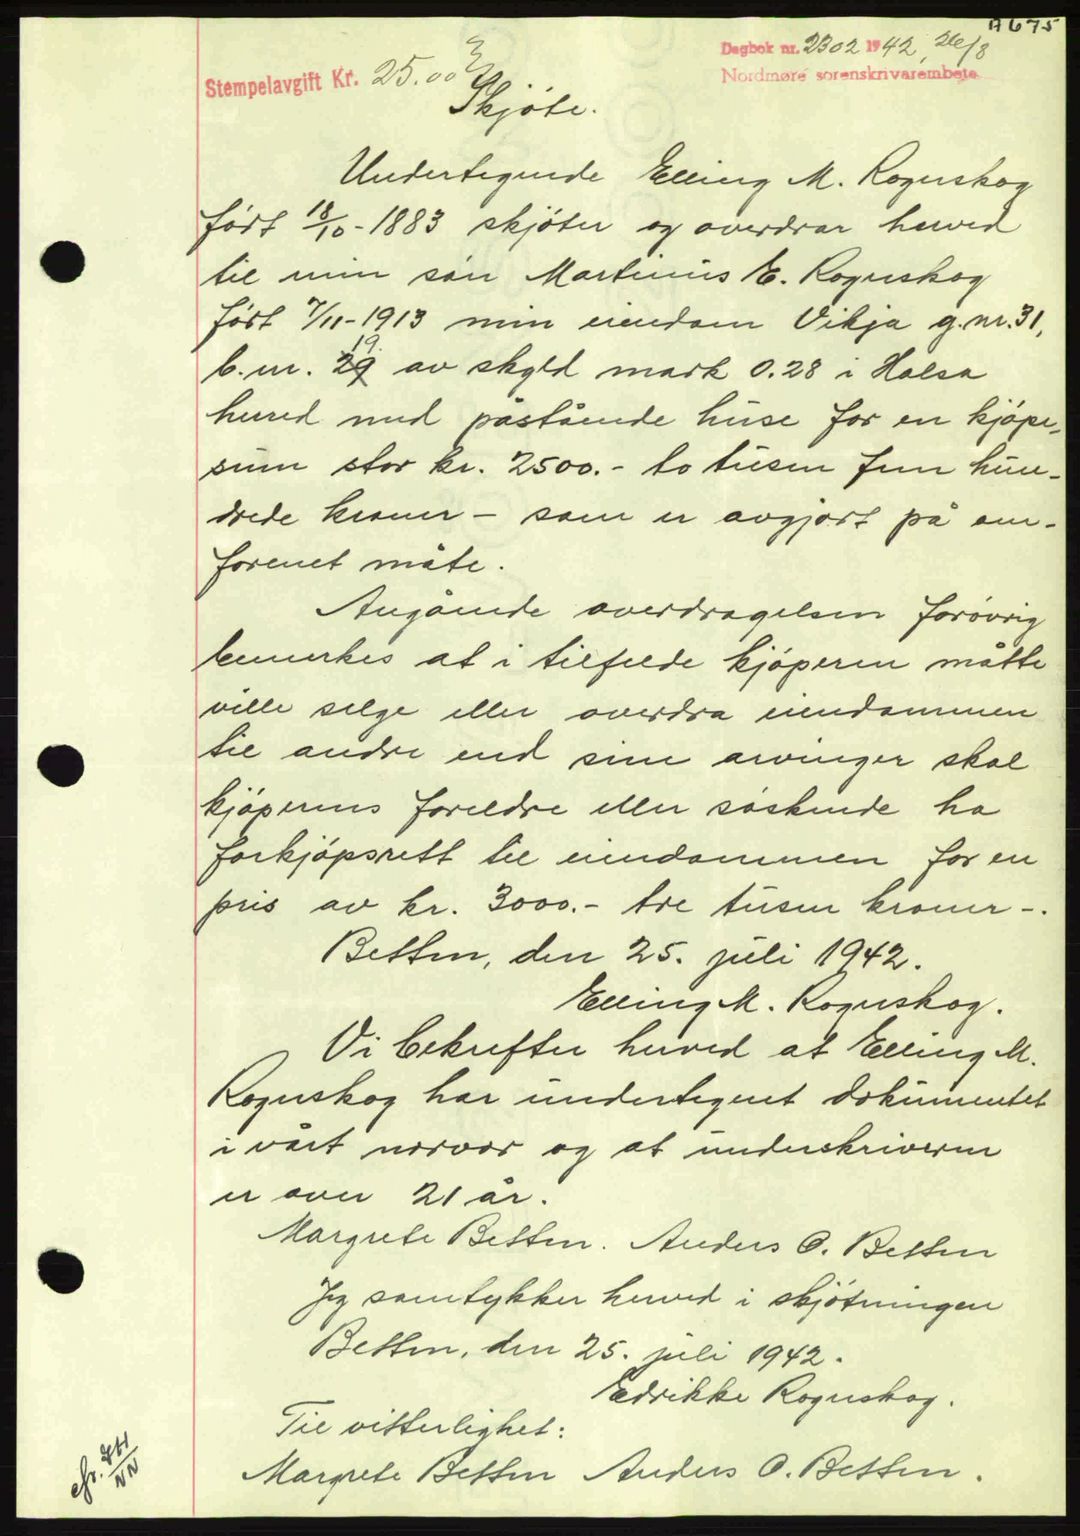 A675
Dagbok nr. 2302 1942, 26/8
Nordmøre sorenskrivarembete
Stempelavgift Kr. 25.00
Skjöte.
Undertegnede Elling M. Rognskog
født 18/10-1883 skjöter og overdrar herved
til min sön Martinus E. Rognskog
födt 7/11-1913 min eiendom Vikja g.nr.31,
19.
b.nr. 29 av skyld mark 0.28 i Halsa
herred med påstående huse for en kjöpe-
sum stor kr. 2500.- to tusen fem hun-
drede kroner - som er avgjort på om-
forenet måte.
Angående overdragelsen forövrig
bemerkes at i tilfelde kjöperen måtte
ville selge eller overdra eiendommen
til andre end sine arvinger skal
kjöperens foreldre eller söskende ha
forkjöpsrett til eiendommen for en
pris av kr. 3000.- tre tusen kroner -.
Betten, den 25. juli 1942.
Elling M. Rognskog.
Vi bekrefter herved at Elling M.
Rognskog har undertegnet dokumentet
i vårt nervær og at underskriveren
er over 21 år.
Margrete Betten. Anders O. Betten
Jeg samtykker herved i skjötningen
Betten, den 25. juli 1942.
Edrikke Rognskog.
Til vitterlighet:
Margrete Betten Anders O. Betten.